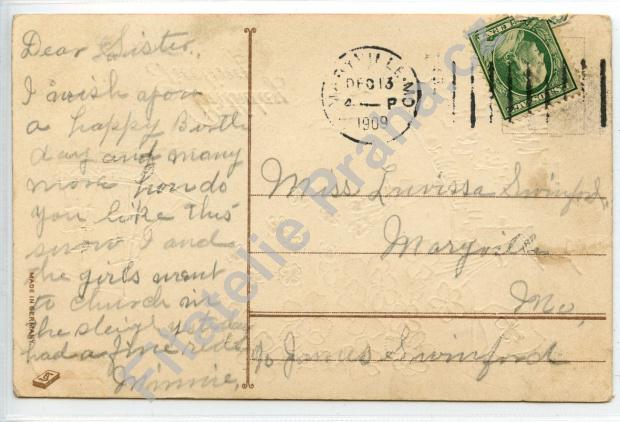 Dear Sister,
I wish you
a happy Birth
day and many
more how do
you like this
snow I and
the girls went
to church in
the sleigh yesterday
had a fine ride
Minnie,
MARYVILLE, MO
DEC 13
4 - P
1909
Miss Luvissa Swinford,
Maryville
Mo,
c/o James Swinford
MADE IN GERMANY.
Filatelie Praha.cz